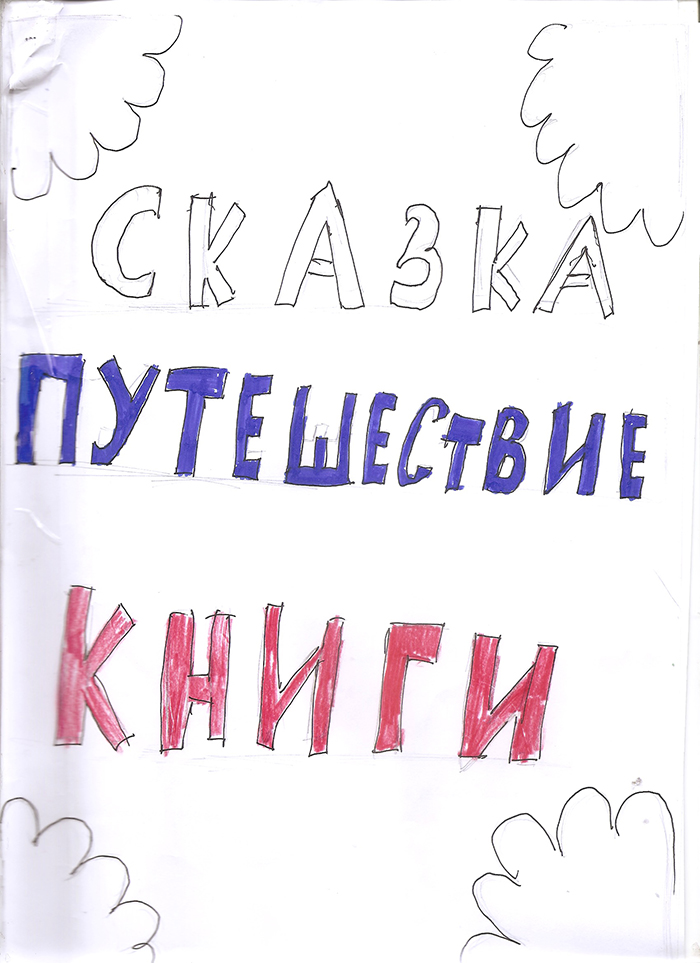 СКАЗКА
ПУТЕШЕСТВИЕ
КНИГИ